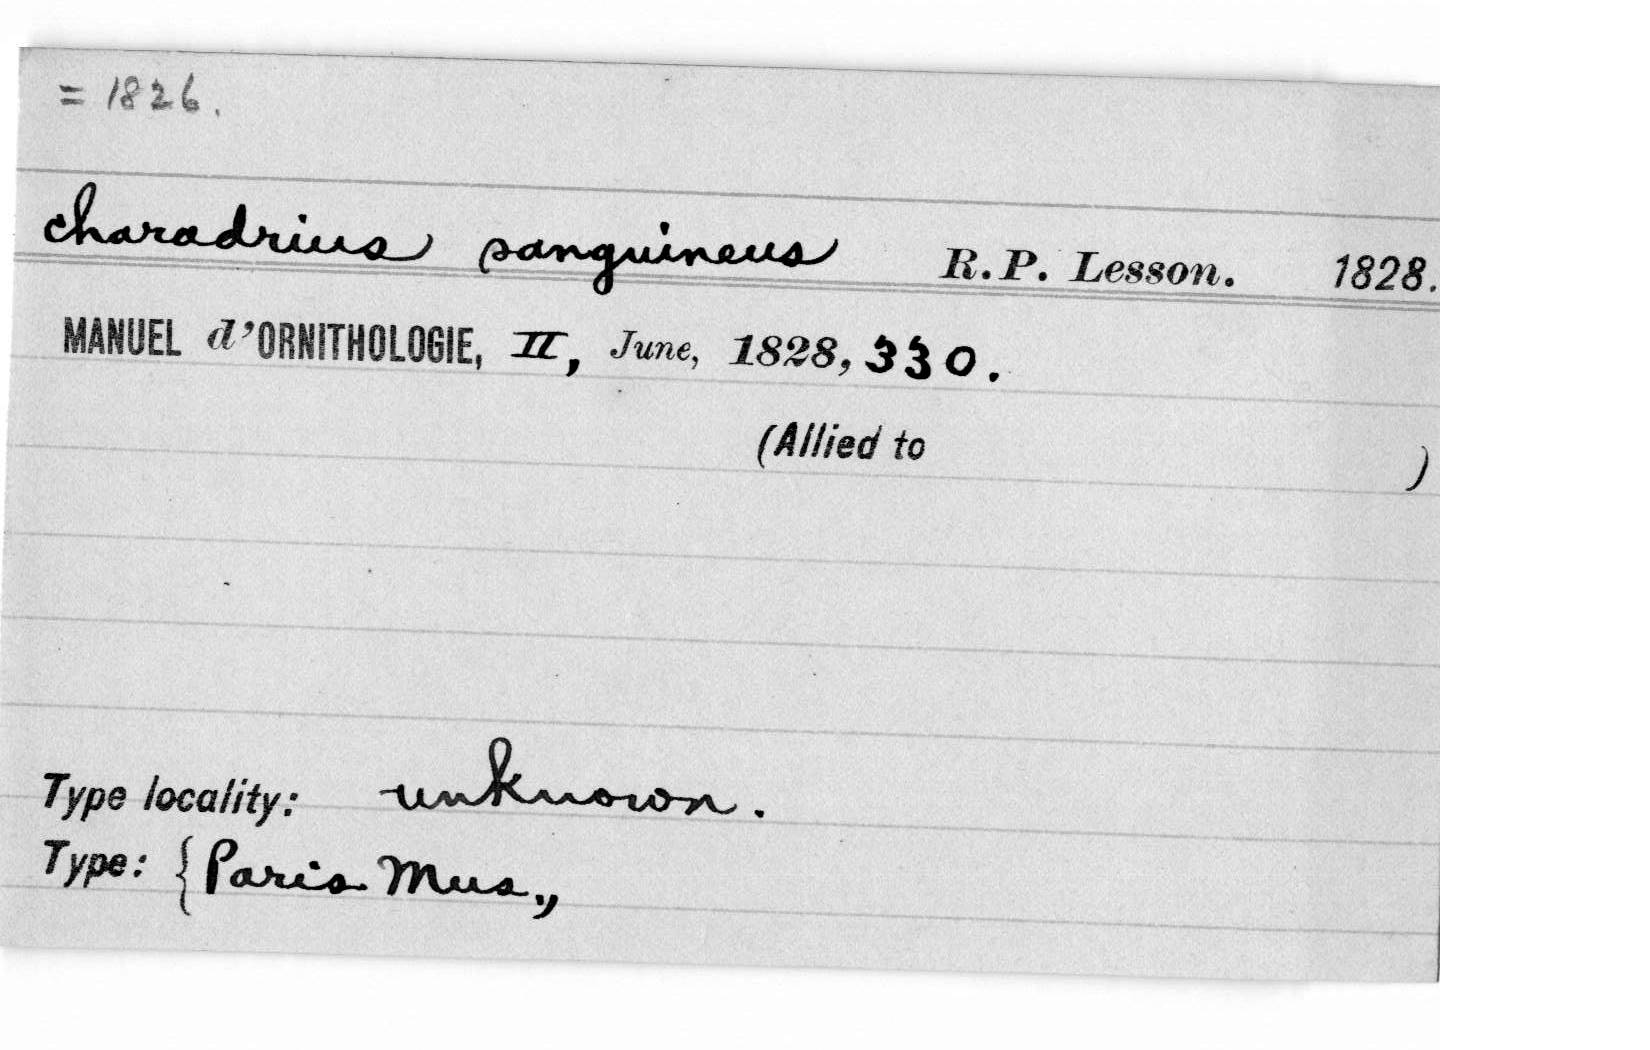 = 1826.
charadrius sanguineus R.P. Lesson. 1828.
MANUEL d'ORNITHOLOGIE, II, June, 1828, 330.
(Allied to )
Type locality: unknown.
Type: { Paris Mus.,